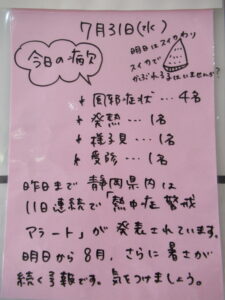 7月31日(水)
今日の病欠
明日はスイカわり
スイカで
かぶれる子はいませんか?
風邪症状…4名
発熱…1名
様子見…1名
受診…1名
昨日まで静岡県内は
11日連続で「熱中症警戒
アラート」が発表されています。
明日から8月。さらに暑さが
続く予報です。気をつけましょう。